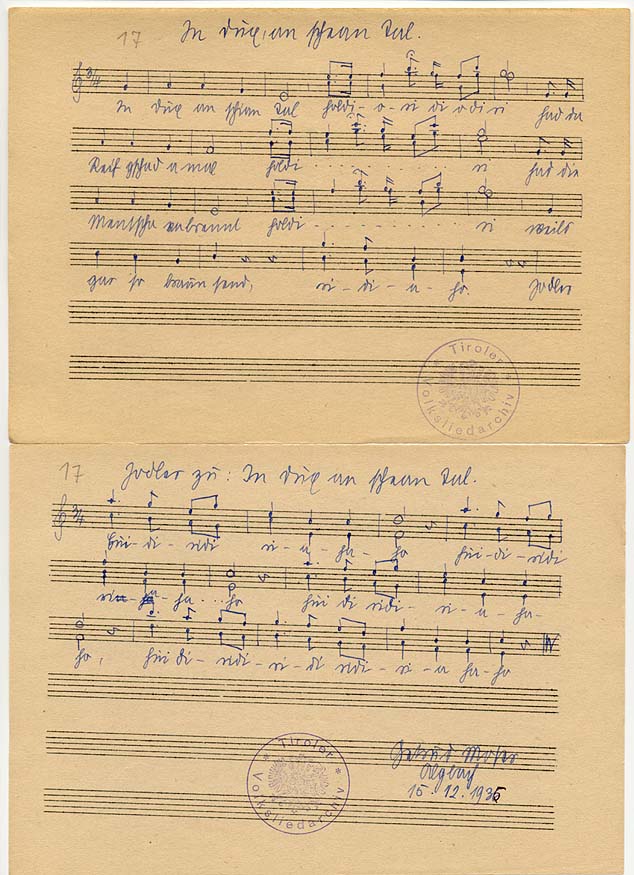 17 In Dux, an schean Tal.
In Dux an schian Tal holdi - o - ri di o di ri had da
Reif gschad a mal holdi . . . . . . . . . . ri had die
Mentscha vabrennt holdi . . . . . . . . . . ri weils
gar so braun send, ri - di - a - ho. Jodler
* Tiroler * Volksliedarchiv
17 Jodler zu: In Dux an schean Tal.
hui - di - ridi ri - a - ha - ho hui - di - ridi
ha . . . ho hui di ridi - ri - a - ha -
ho, hui di - ridi - ri - di ridi - ri - a ha - ho
* Tiroler * Volksliedarchiv
Moser
15.12.1935